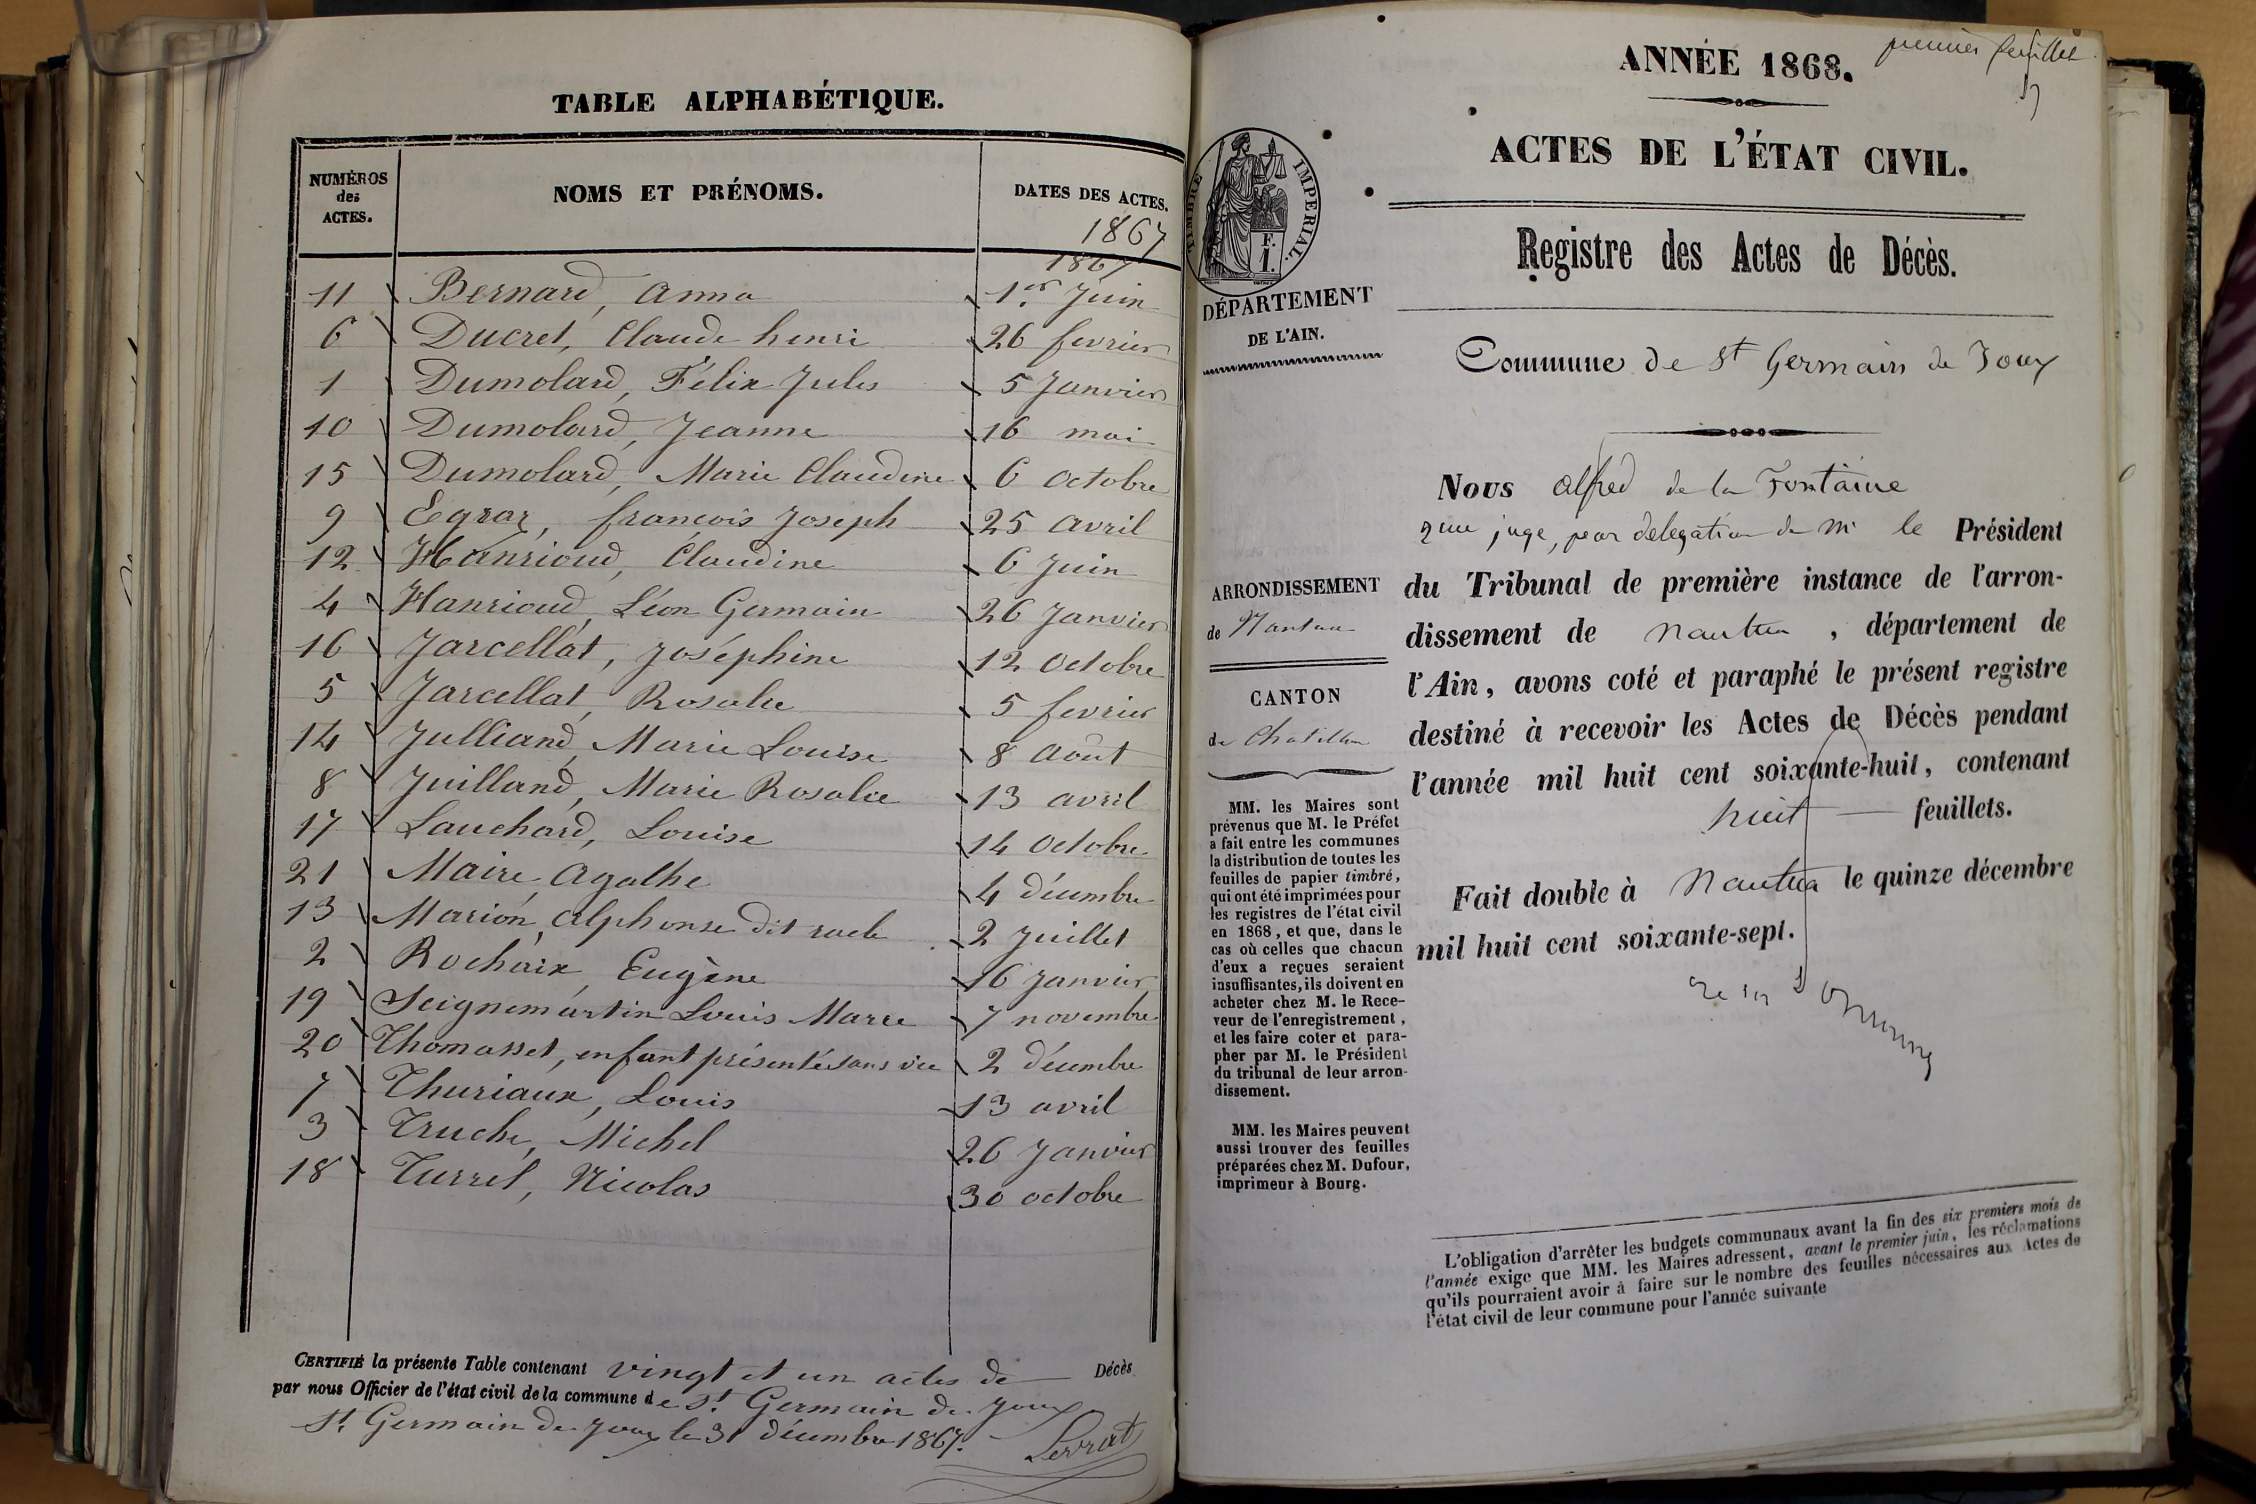 TABLE ALPHABÉTIQUE.
NUMÉROS des ACTES. NOMS ET PRÉNOMS. DATES DES ACTES.
1867
1867
11 Bernard, Anna 1er Juin
6 Ducret, Claude henri 26 fevrier
1 Dumolard, Félix Jules 5 Janvier
10 Dumolard, Jeanne 16 mai
15 Dumolard, Marie Claudine 6 Octobre
9 Egraz, françois Joseph 25 avril
12 Hanrioud, Claudine 6 Juin
4 Hanrioud, Léon Germain 26 Janvier
16 Jarcellat, Joséphine 12 Octobre
5 Jarcellat, Rosalie 5 fevrier
14 Julliand, Marie Louise 8 Août
8 Juilland, Marie Rosalie 13 avril
17 Lauchard, Louise 14 Octobre
21 Maire, Agathe 4 décembre
13 Marion, Alphonse dit 2 Juillet
2 Rochaix, Eugène 16 Janvier
19 Seignemartin Louis Marie 7 novembre
20 Thomasset, enfant présenté sans vie 2 décembre
7 Thuriaux, Louis 13 avril
3 Truche, Michel 26 Janvier
18 Turrel, Nicolas 30 octobre
CERTIFIÉ la présente Table contenant vingt et un actes de Décès
par nous Officier de l'état civil de la commune de St Germain de Joux
St Germain de Joux le 31 décembre 1867.
Serrat
premier feuillet
ANNÉE 1868.
ACTES DE L'ÉTAT CIVIL.
TIMBRE IMPÉRIAL.
F.
1.
Registre des Actes de Décès.
DÉPARTEMENT
DE L'AIN.
Commune de St Germain de Joux
Nous Alfred de la Fontaine
juge, par delegation de Mr le Président
du Tribunal de première instance de l'arron-
dissement de Nantua, département de
l'Ain, avons coté et paraphé le présent registre
destiné à recevoir les Actes de Décès pendant
l'année mil huit cent soixante-huit, contenant
huit feuillets.
Fait double à Nantua le quinze décembre
mil huit cent soixante-sept.
ARRONDISSEMENT
de Nantua
CANTON
de Chatillon
MM. les Maires sont
prévenus que M. le Préfet
a fait entre les communes
la distribution de toutes les
feuilles de papier timbré,
qui ont été imprimées pour
les registres de l'état civil
en 1868, et que, dans le
cas où celles que chacun
d'eux a reçues seraient
insuffisantes, ils doivent en
acheter chez M. le Rece-
veur de l'enregistrement,
et les faire coter et para-
pher par M. le Président
du tribunal de leur arron-
dissement.
MM. les Maires peuvent
aussi trouver des feuilles
préparées chez M. Dufour,
imprimeur à Bourg.
L'obligation d'arrêter les budgets communaux avant la fin des six premiers mois de
l'année exige que MM. les Maires adressent, avant le premier juin, les réclamations
qu'ils pourraient avoir à faire sur le nombre des feuilles nécessaires aux Actes de
l'état civil de leur commune pour l'année suivante